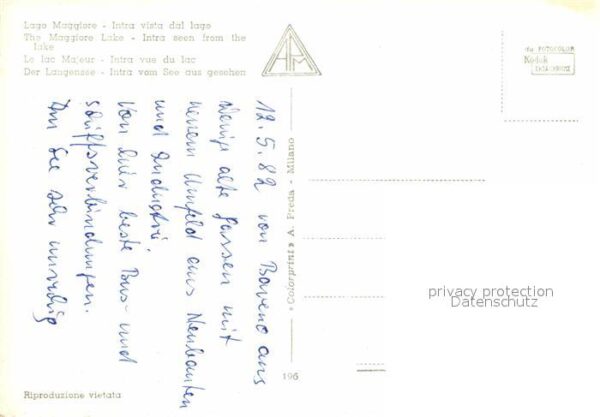 Lago Maggiore - Intra vista dal lago
The Maggiore Lake - Intra seen from the
lake
Le lac Majeur - Intra vue du lac
Der Langensee - Intra vom See aus gesehen
APM
du FOTOCOLOR
Kodak
EKTACHROME
12.5.82 von Baveno aus
Wenig alte Gassen mit
einem Umfeld aus Neubauten
und Industrie.
Von hier beste Bus- und
Schiffsverbindungen.
Am See sehr unruhig
"Colorprint" A. Preda - Milano
privacy protection
Datenschutz
196
Riproduzione vietata